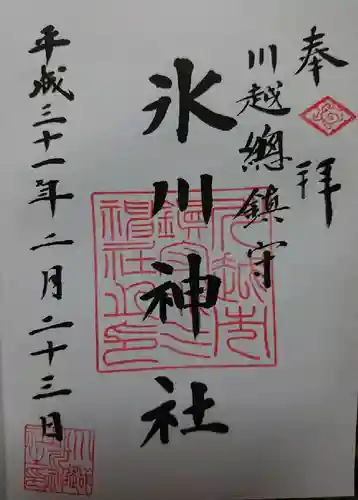 奉拝
川越總鎮守
氷川神社
平成三十一年二月二十三日